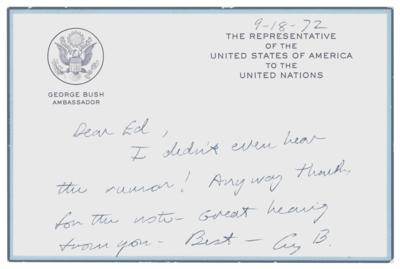 9-18-72
THE REPRESENTATIVE
OF THE
UNITED STATES OF AMERICA
TO THE
UNITED NATIONS
GEORGE BUSH
AMBASSADOR
Dear Ed,
I didn't even hear
the rumor! Anyway thanks
for the note - Great hearing
from you - Best - G B.